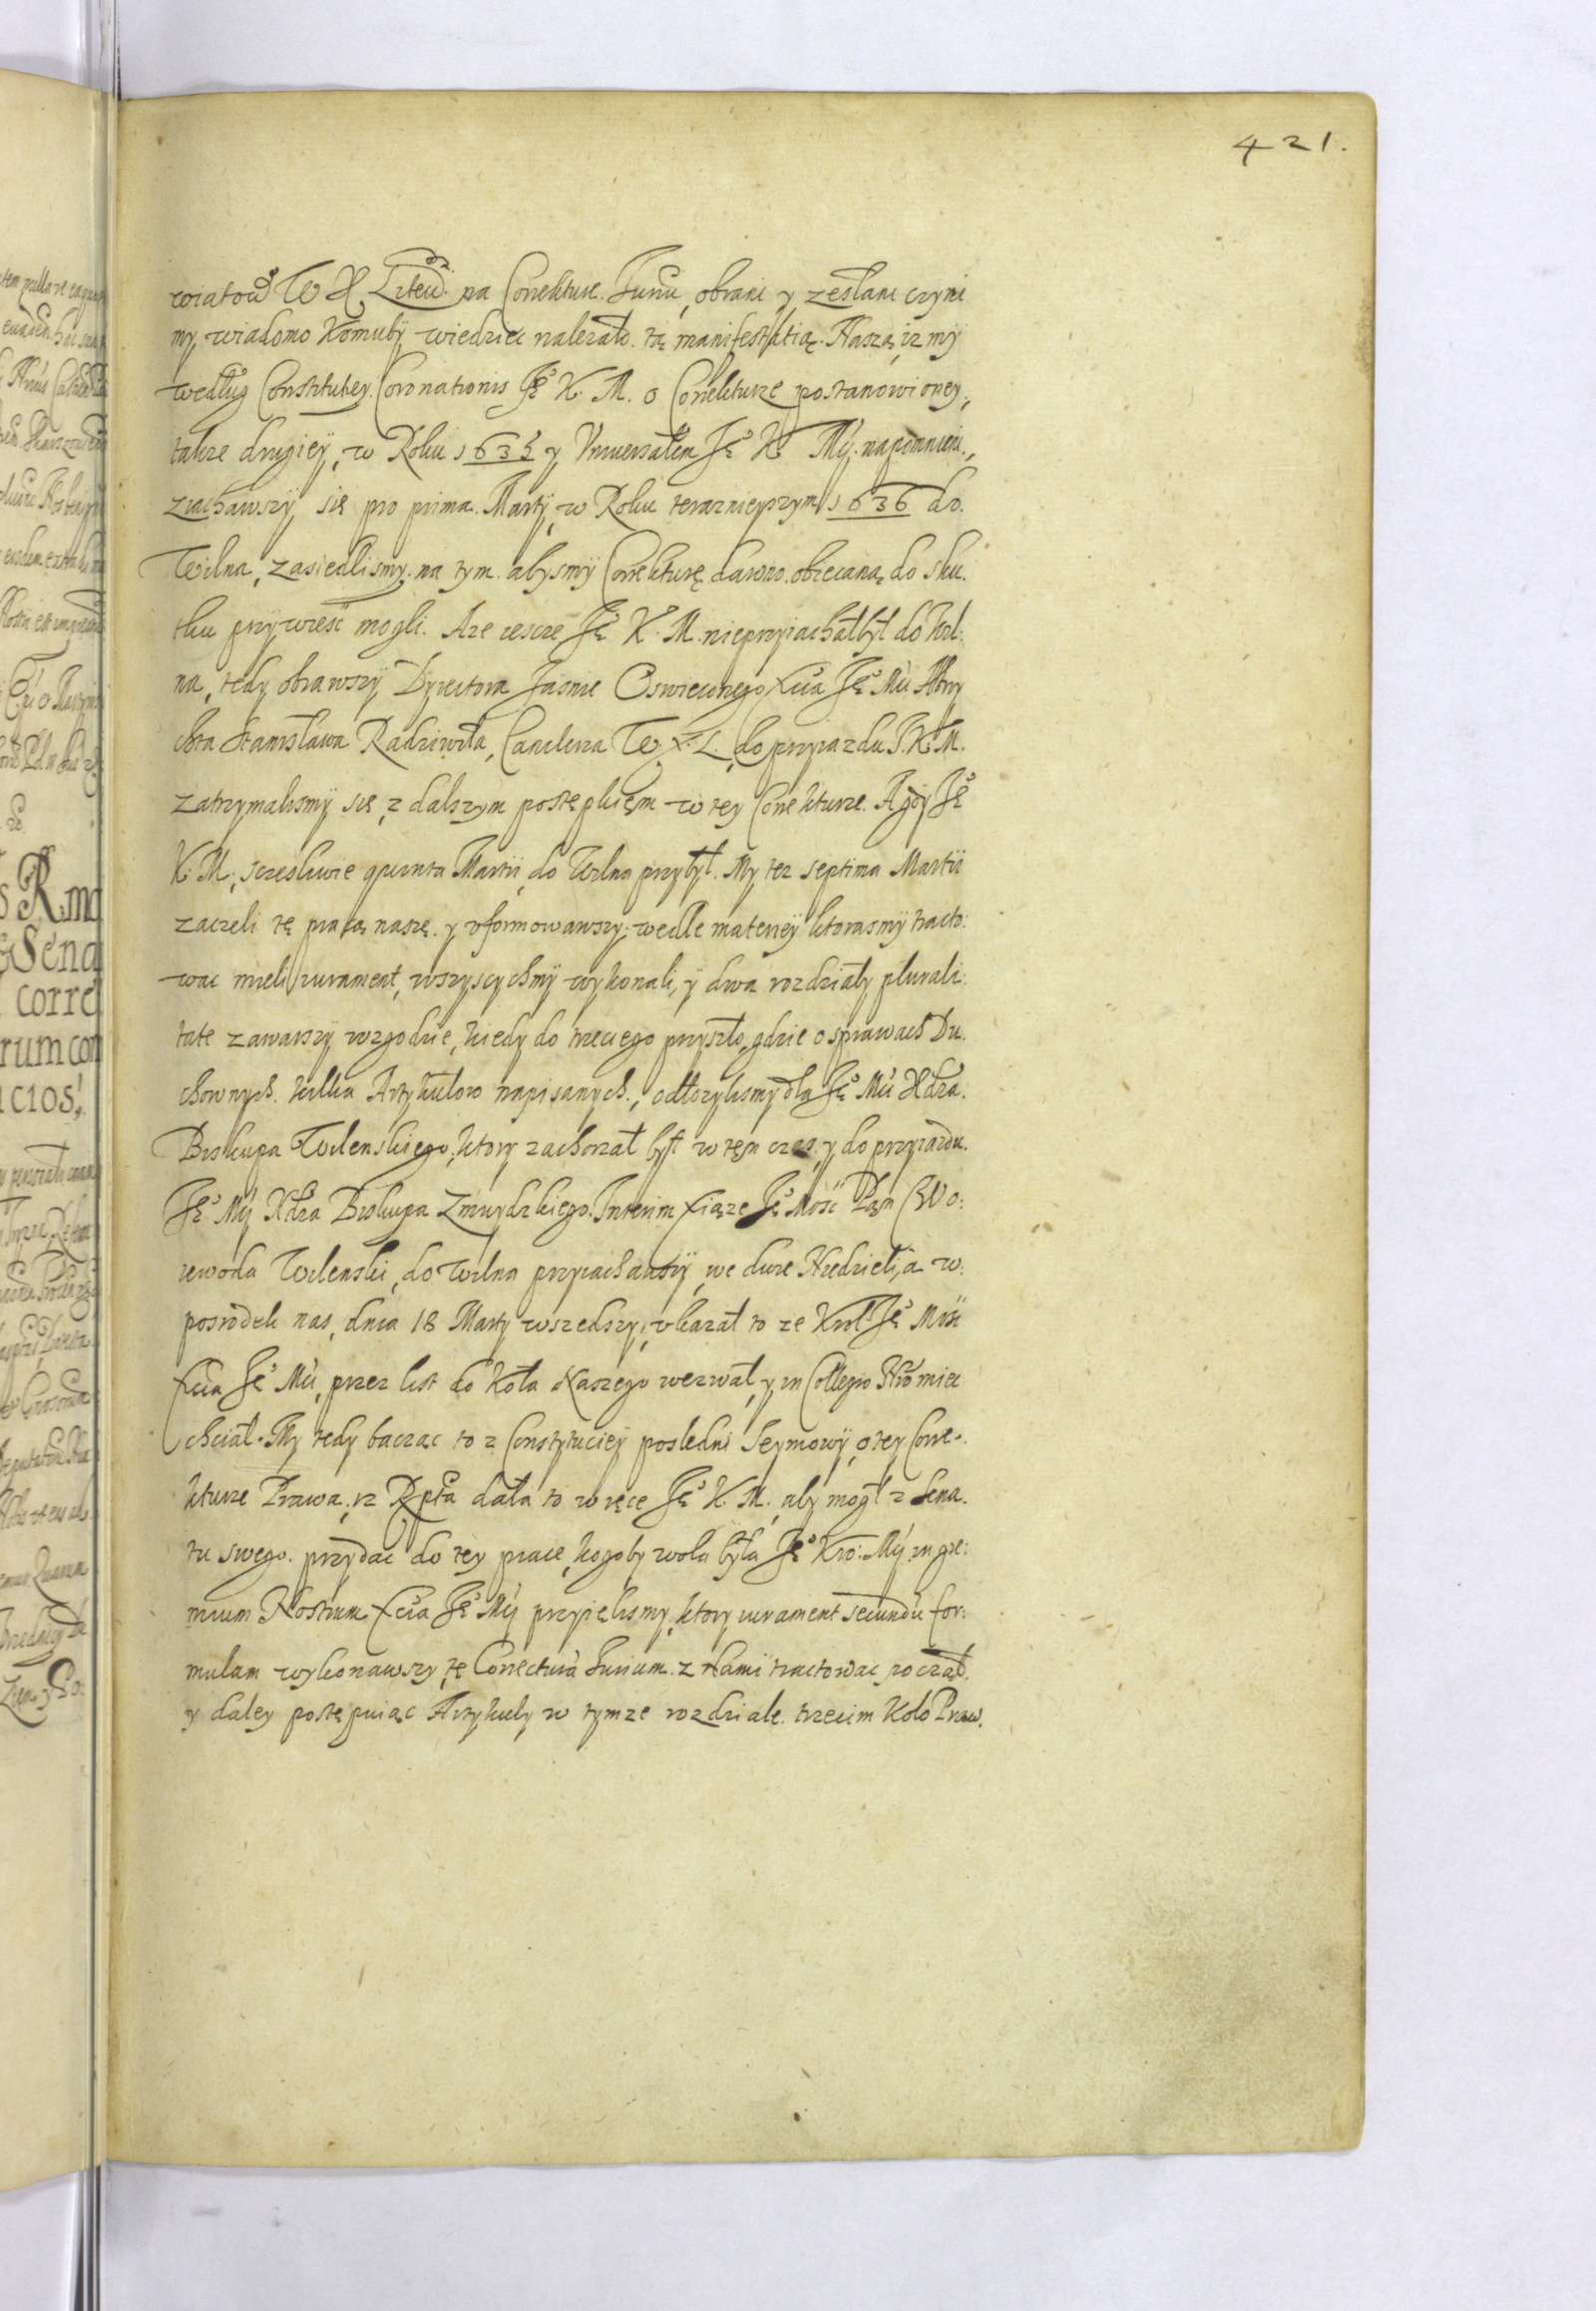 421.
wiatow W X Litew. na Correkture Juriu, obrani y zesłani czyni
my wiadomo komuby wiedziec nalezało. tę manifestatią Naszą, iz my
według Constitutiey Coronationis Je° K. M. o Correkturze postanowioney,
takze drugieÿ, w Roku 1635 y Vniuersałem Je° K Mÿ. napomnieni,
ziachawszÿ się pro prima Martÿ, w Roku teraznieyszym 1636 do
Wilna, zasiedlismy. na tym. abysmÿ Correkturę dawno. obiecaną do sku.
tku prziwiesć mogli. Aze iescze Je° K. M. nieprzyiachał był do Wil:
na, tedy obrawszÿ Dyrectora Jasnie Oswieconego Xcia Je° Mci Albry
chta Stanisława Radziwiła, Canclerza W. X. L. do przyiazdu J. K. M.
zatrzymalismÿ się, z dalszym postępkięm w tey Correkturze. A gdÿ Je°
K. M., sczesliwie quinta Martii, do Wilna przybył. My tez septima Martii
zaczeli tę pracą naszę. y vformowawszy. wedle materieÿ ktorasmÿ tracto:
wac mieli iurament, wszyscychmÿ wykonali, ÿ dwa rozdziały plurali:
tate zawarszÿ w zgodzie, kiedy do trzeciego przyszło, gdzie o sprawach Du.
chownych. kilka Artykułow napisanych, odłozylismy dla Je° Mci Xdza.
Biskupa Wilenskiego, ktory zachorzał był w tęn czas, y do przyiazdu.
Je° Mci Xdza Biskupa Zmuydzkiego. Interim Xiąze Je° Mość Pąn Wo:
iewoda Wilenski, do Wilna przyiachawszÿ, we dwie Niedzieli, a w:
posrodek nas, dnia 18 Marty wszedszy, vkazał to ze Krol Je° Mość
Xcia Je° Mci, przez list do Koła Naszego wezwał, y in Collegio Nro miec
chciał. My tedy bacząc to z Constytuciey posledni Seymowÿ, o tey Corre.
kturze Prawa, iz Rpta dała to w ręce Je° K. M. aby mogł z Sena.
tu swego. przydac do tey prace, kogoby wola była Je° Kro: Mci in gre:
mium Nostrum Xcia Je° Mci przyięlismy, ktory iurament secundū for:
mulam wykonawszy, tę Correcturą Iurium. z Nami tractowac począł.
y daley postępuiąc Artykuły w tymze rozdziale. trzecim Koło Praw.